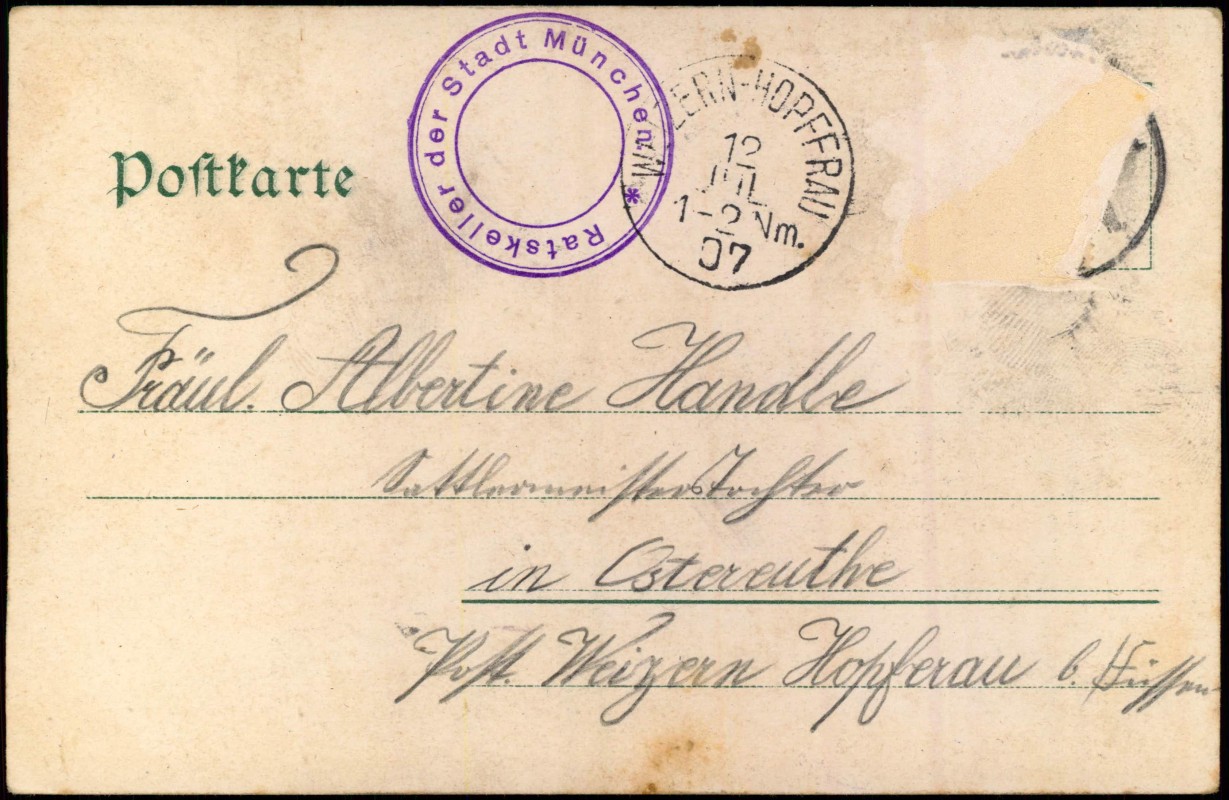 Postkarte
Ratskeller der Stadt München *
ZERN-HOPFFRAU
12
JUL
1-2 Nm.
07
Fräul. Albertine Handle
Sattlermeisters Tochter
in Ostereuthe
Post. Weizern Hopferau b. Füssen